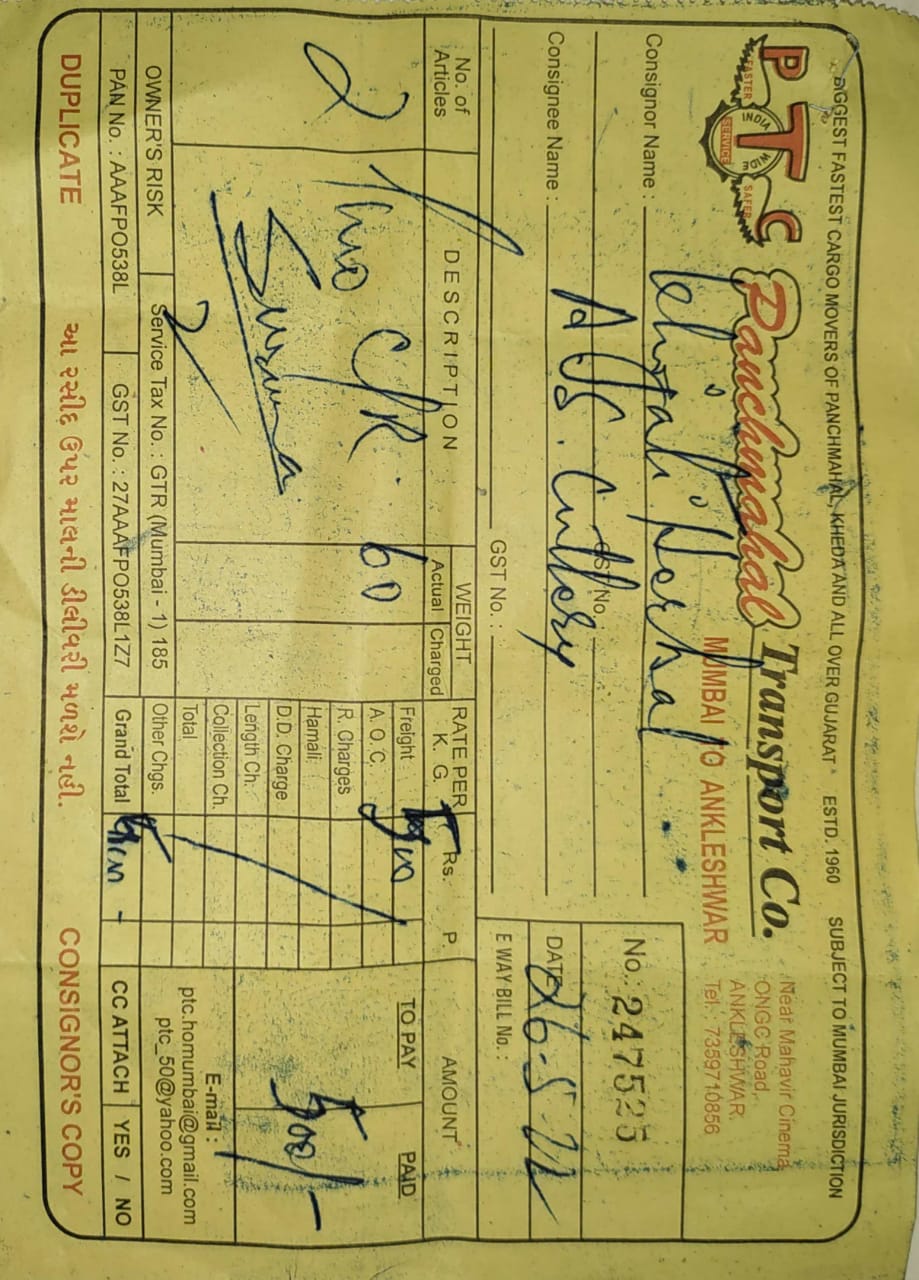 BIGGEST FASTEST CARGO MOVERS OF PANCHMAHAL, KHEDA AND ALL OVER GUJARAT ESTD. 1960 SUBJECT TO MUMBAI JURISDICTION
PTC
FASTER INDIA WIDE SERVICE SAFER
Panchmahal Transport Co.
MUMBAI TO ANKLESHWAR
Near Mahavir Cinema
ONGC Road,
ANKLESHWAR.
Tel.: 7359710856
Consignor Name :
GST No.:
No.: 247525
Consignee Name : A
DATE 26-5-22
GST No. :
E WAY BILL No. :
No. of Articles
DESCRIPTION
WEIGHT
Actual Charged
RATE PER K. G.
Rs. P.
AMOUNT
TO PAY PAID
2
Two C/R.
60
Freight
A. O. C.
R. Charges
Hamali
D.D. Charge
Length Ch.
Collection Ch.
Total
Other Chgs.
Grand Total
500/-
OWNER'S RISK
Service Tax No. : GTR (Mumbai - 1) 185
E-mail :
ptc.homumbai@gmail.com
ptc_50@yahoo.com
PAN No. : AAAFPO538L
GST No. : 27AAAFPO538L1Z7
CC ATTACH YES / NO
DUPLICATE
આ રસીદ ઉપર માલની ડીલીવરી મળશે નહી.
CONSIGNOR'S COPY